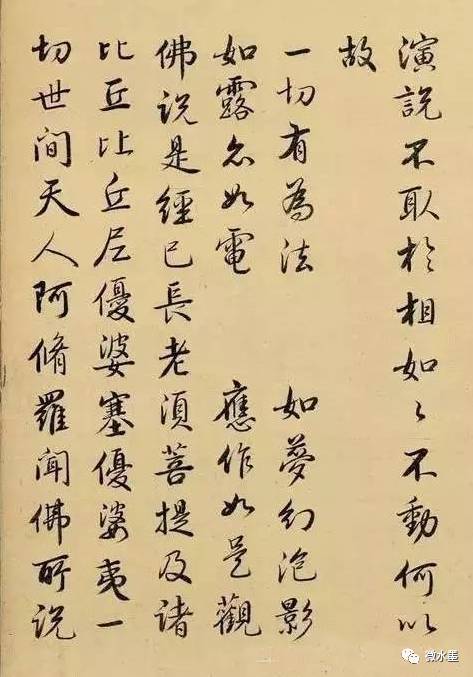 演說不取於相如々不動何以
故
一切有為法　如夢幻泡影
如露亦如電　應作如是觀
佛說是經已長老須菩提及諸
比丘比丘尼優婆塞優婆夷一
切世間天人阿脩羅聞佛所說
微水墨